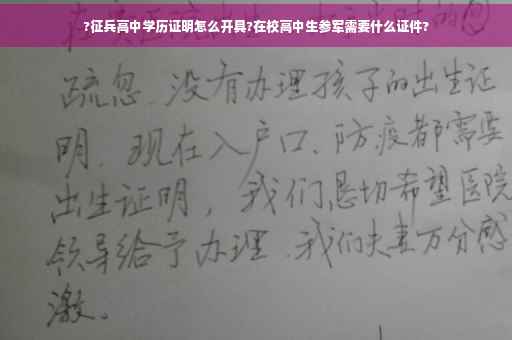 ?征兵高中学历证明怎么开具?在校高中生参军需要什么证件?
疏忽、没有办理孩子的出生证
明、现在入户口、防疫都需要
出生证明，我们恳切希望医院
领导给予办理、我们夫妻万分感
激。